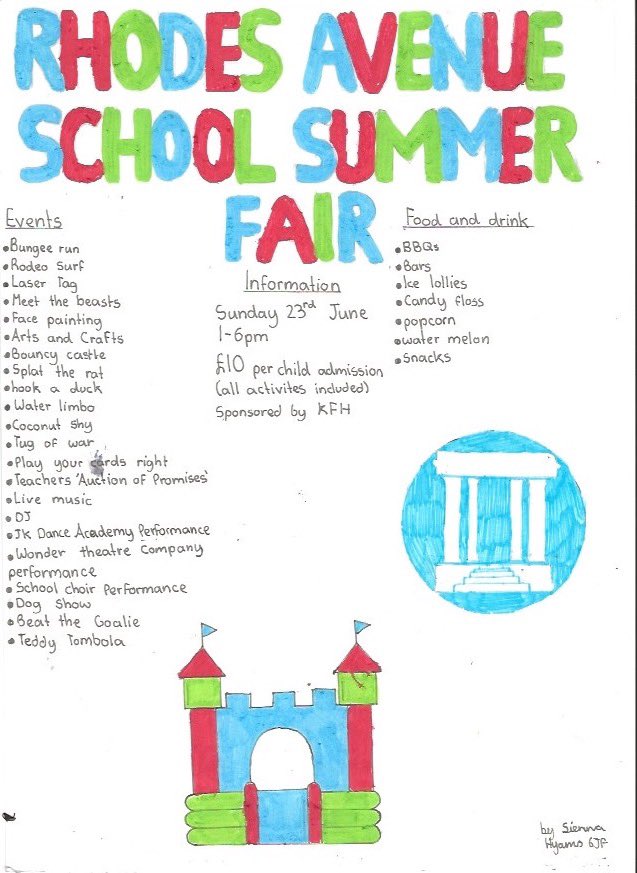 RHODES AVENUE
SCHOOL SUMMER
FAIR
Events
•Bungee run
•Rodeo Surf
•Laser Tag
•Meet the beasts
•Face painting
•Arts and Crafts
•Bouncy castle
•Splat the rat
•hook a duck
•Water limbo
•Coconut Shy
•Tug of war
•Play your cards right
•Teachers 'Auction of Promises'
•Live music
•DJ
•JK Dance Academy Performance
•Wonder theatre Company
performance
•School choir Performance
•Dog Show
•Beat the Goalie
•Teddy Tombola
Information
Sunday 23rd June
1-6pm
£10 per child admission
(all activites included)
Sponsored by KFH
Food and drink
•BBQs
•Bars
•Ice lollies
•Candy floss
•popcorn
•water melon
•snacks
by Sienna
Hyams 6JF